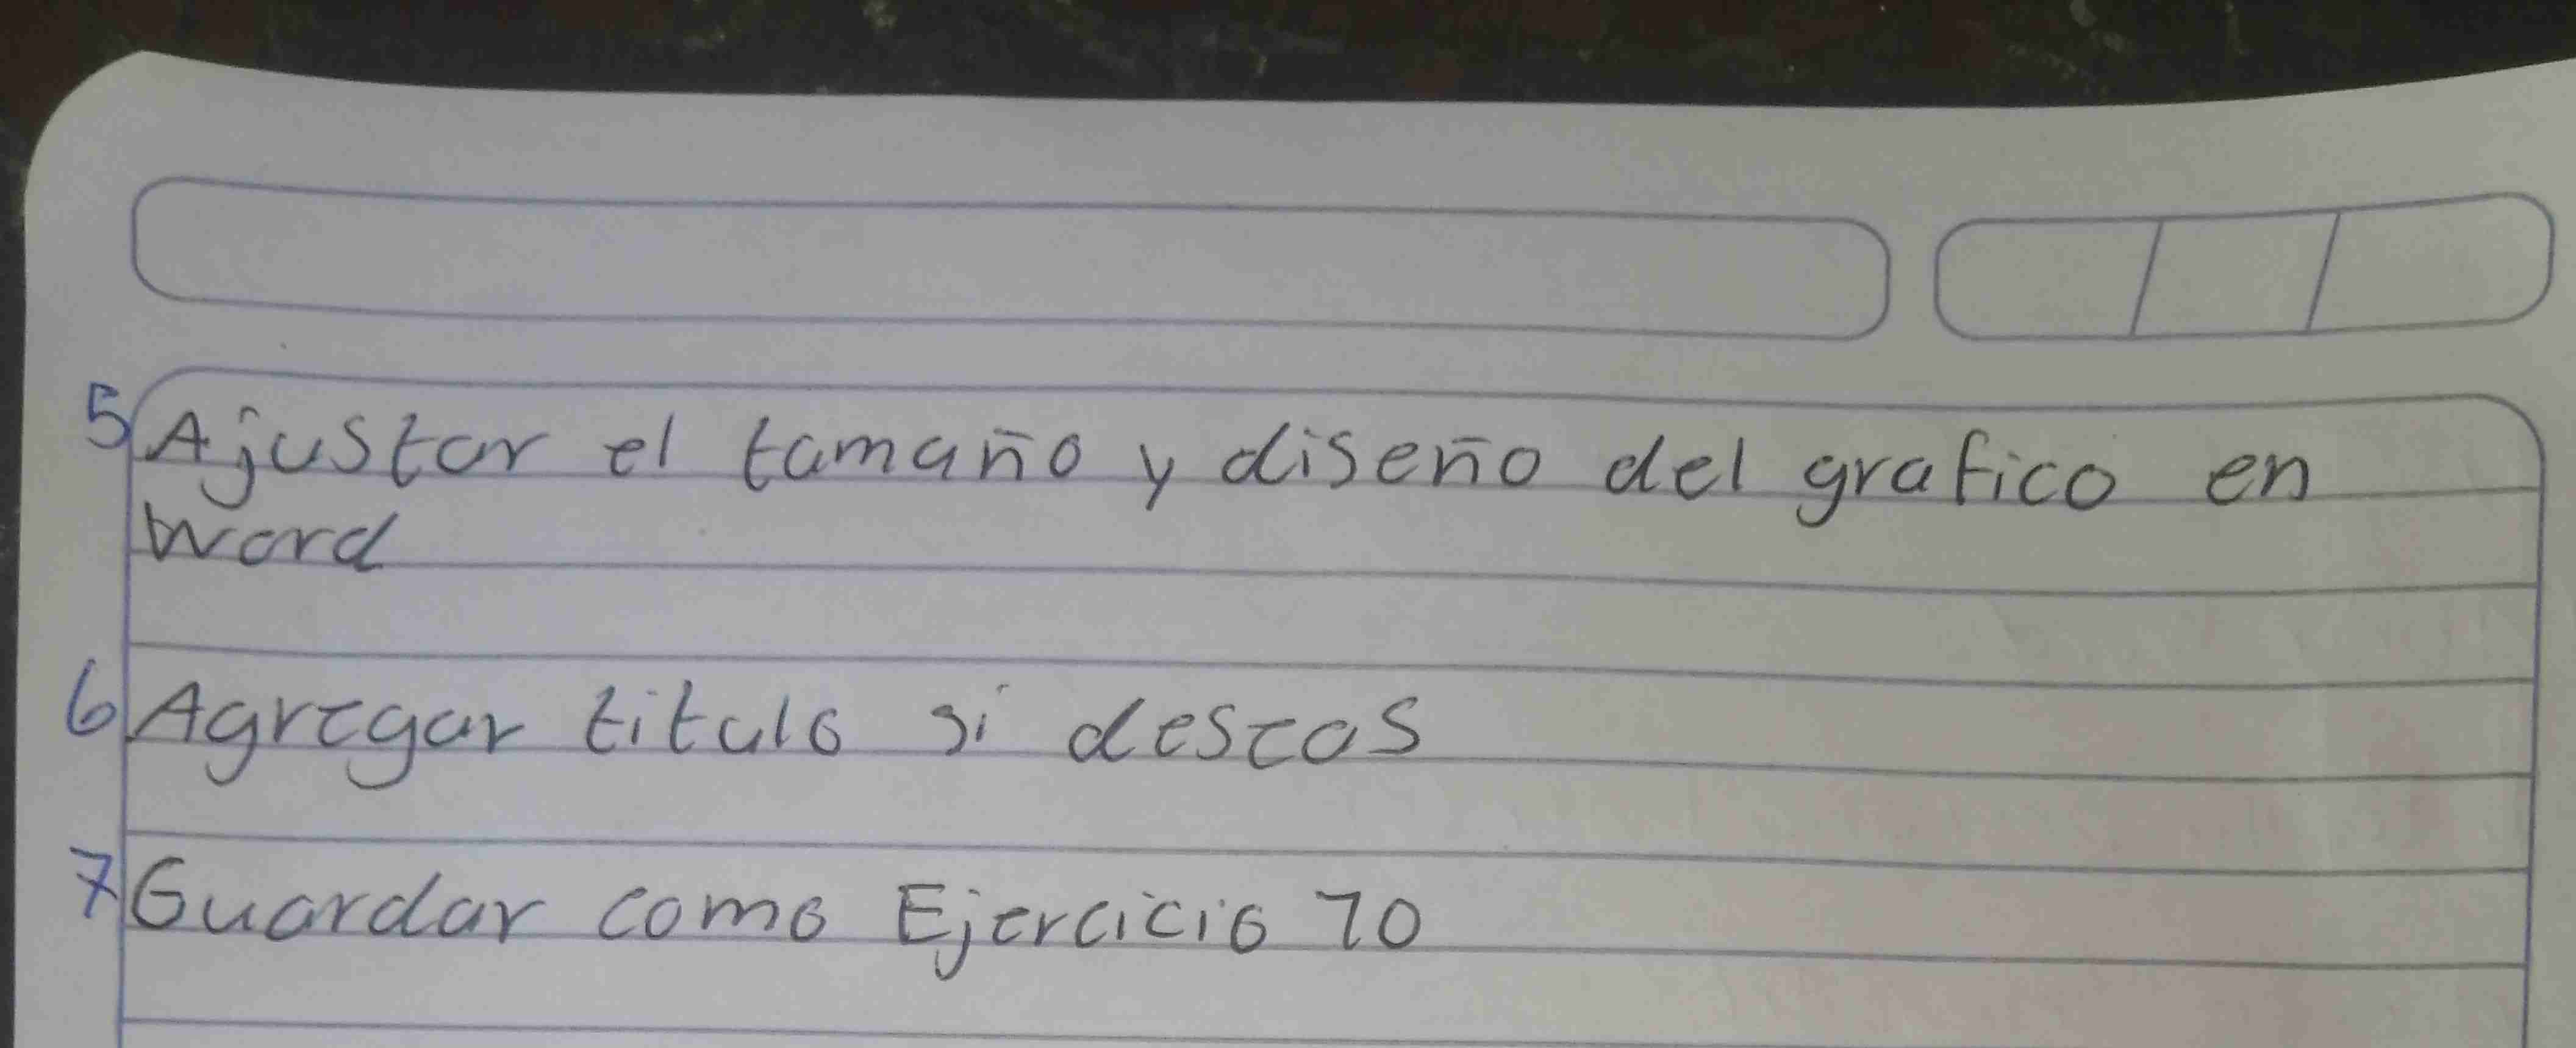 5 Ajustar el tamaño y diseño del grafico en
Word
6 Agregar titulo si deseas
7 Guardar como Ejercicio 10